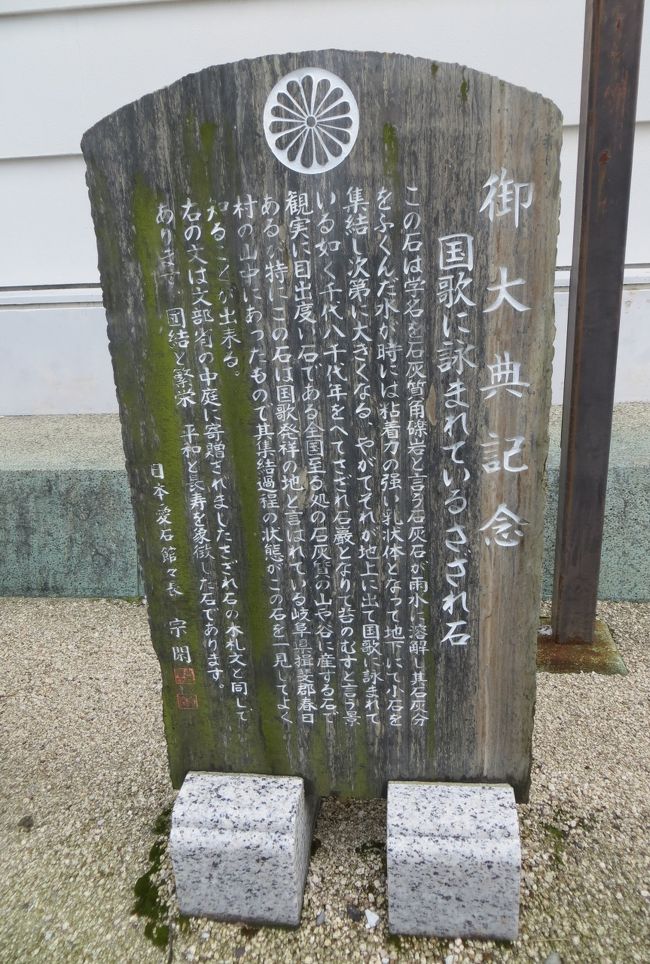 御大典記念
国歌に詠まれているさざれ石
この石は学名を石灰質角礫岩と言う石灰石が雨水に溶解し其石灰分
をふくんだ水が時には粘着力の強い乳状体となって地下にて小石を
集結し次第に大きくなる、やがてそれが地上に出て国歌に詠まれて
いる如く千代八千代年をへてさざれ石巌となりて苔のむすと言う景
観実に目出度い石である全国至る処の石灰質の山や谷に産する石で
ある、特にこの石は国歌発祥の地と言はれている岐阜県揖斐郡春日
村の山中にあったもので其集結過程の状態がこの石を一見してよく
知ることが出来る。
右の文は文部省の中庭に寄贈されましたさざれ石の本札文と同じで
あります 団結と繁栄 平和と長寿を象徴した石であります。
日本愛石館々長 宗閑